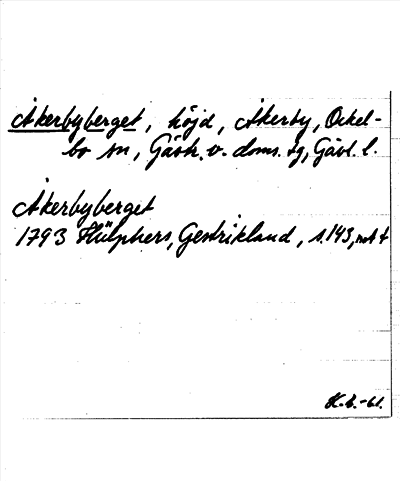 Åkerbyberget, höjd, Åkerby, Ockel-
bo sn, Gästr. v. doms. tg, Gävl. l.
Åkerbyberget
1793 Hülphers, Gestrikland, s. 143, not t
H.B.-61.